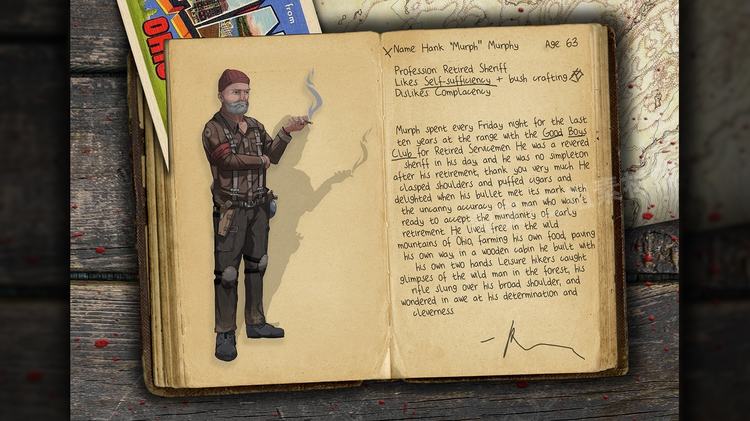 from
Ohio
Name Hank "Murph" Murphy Age 63
Profession Retired Sheriff
Likes Self-sufficiency + bush crafting
Dislikes Complacency
Murph spent every Friday night for the last
ten years at the range with the Good Boys
Club for Retired Servicemen. He was a revered
sheriff in his day and he was no simpleton
after his retirement, thank you very much. He
clasped shoulders and puffed cigars and
delighted when his bullet met its mark with
the uncanny accuracy of a man who wasn't
ready to accept the mundanity of early
retirement. He lived free in the wild
mountains of Ohio, farming his own food, paving
his own way in a wooden cabin he built with
his own two hands. Leisure hikers caught
glimpses of the wild man in the forest, his
rifle slung over his broad shoulder, and
wondered in awe at his determination and
cleverness